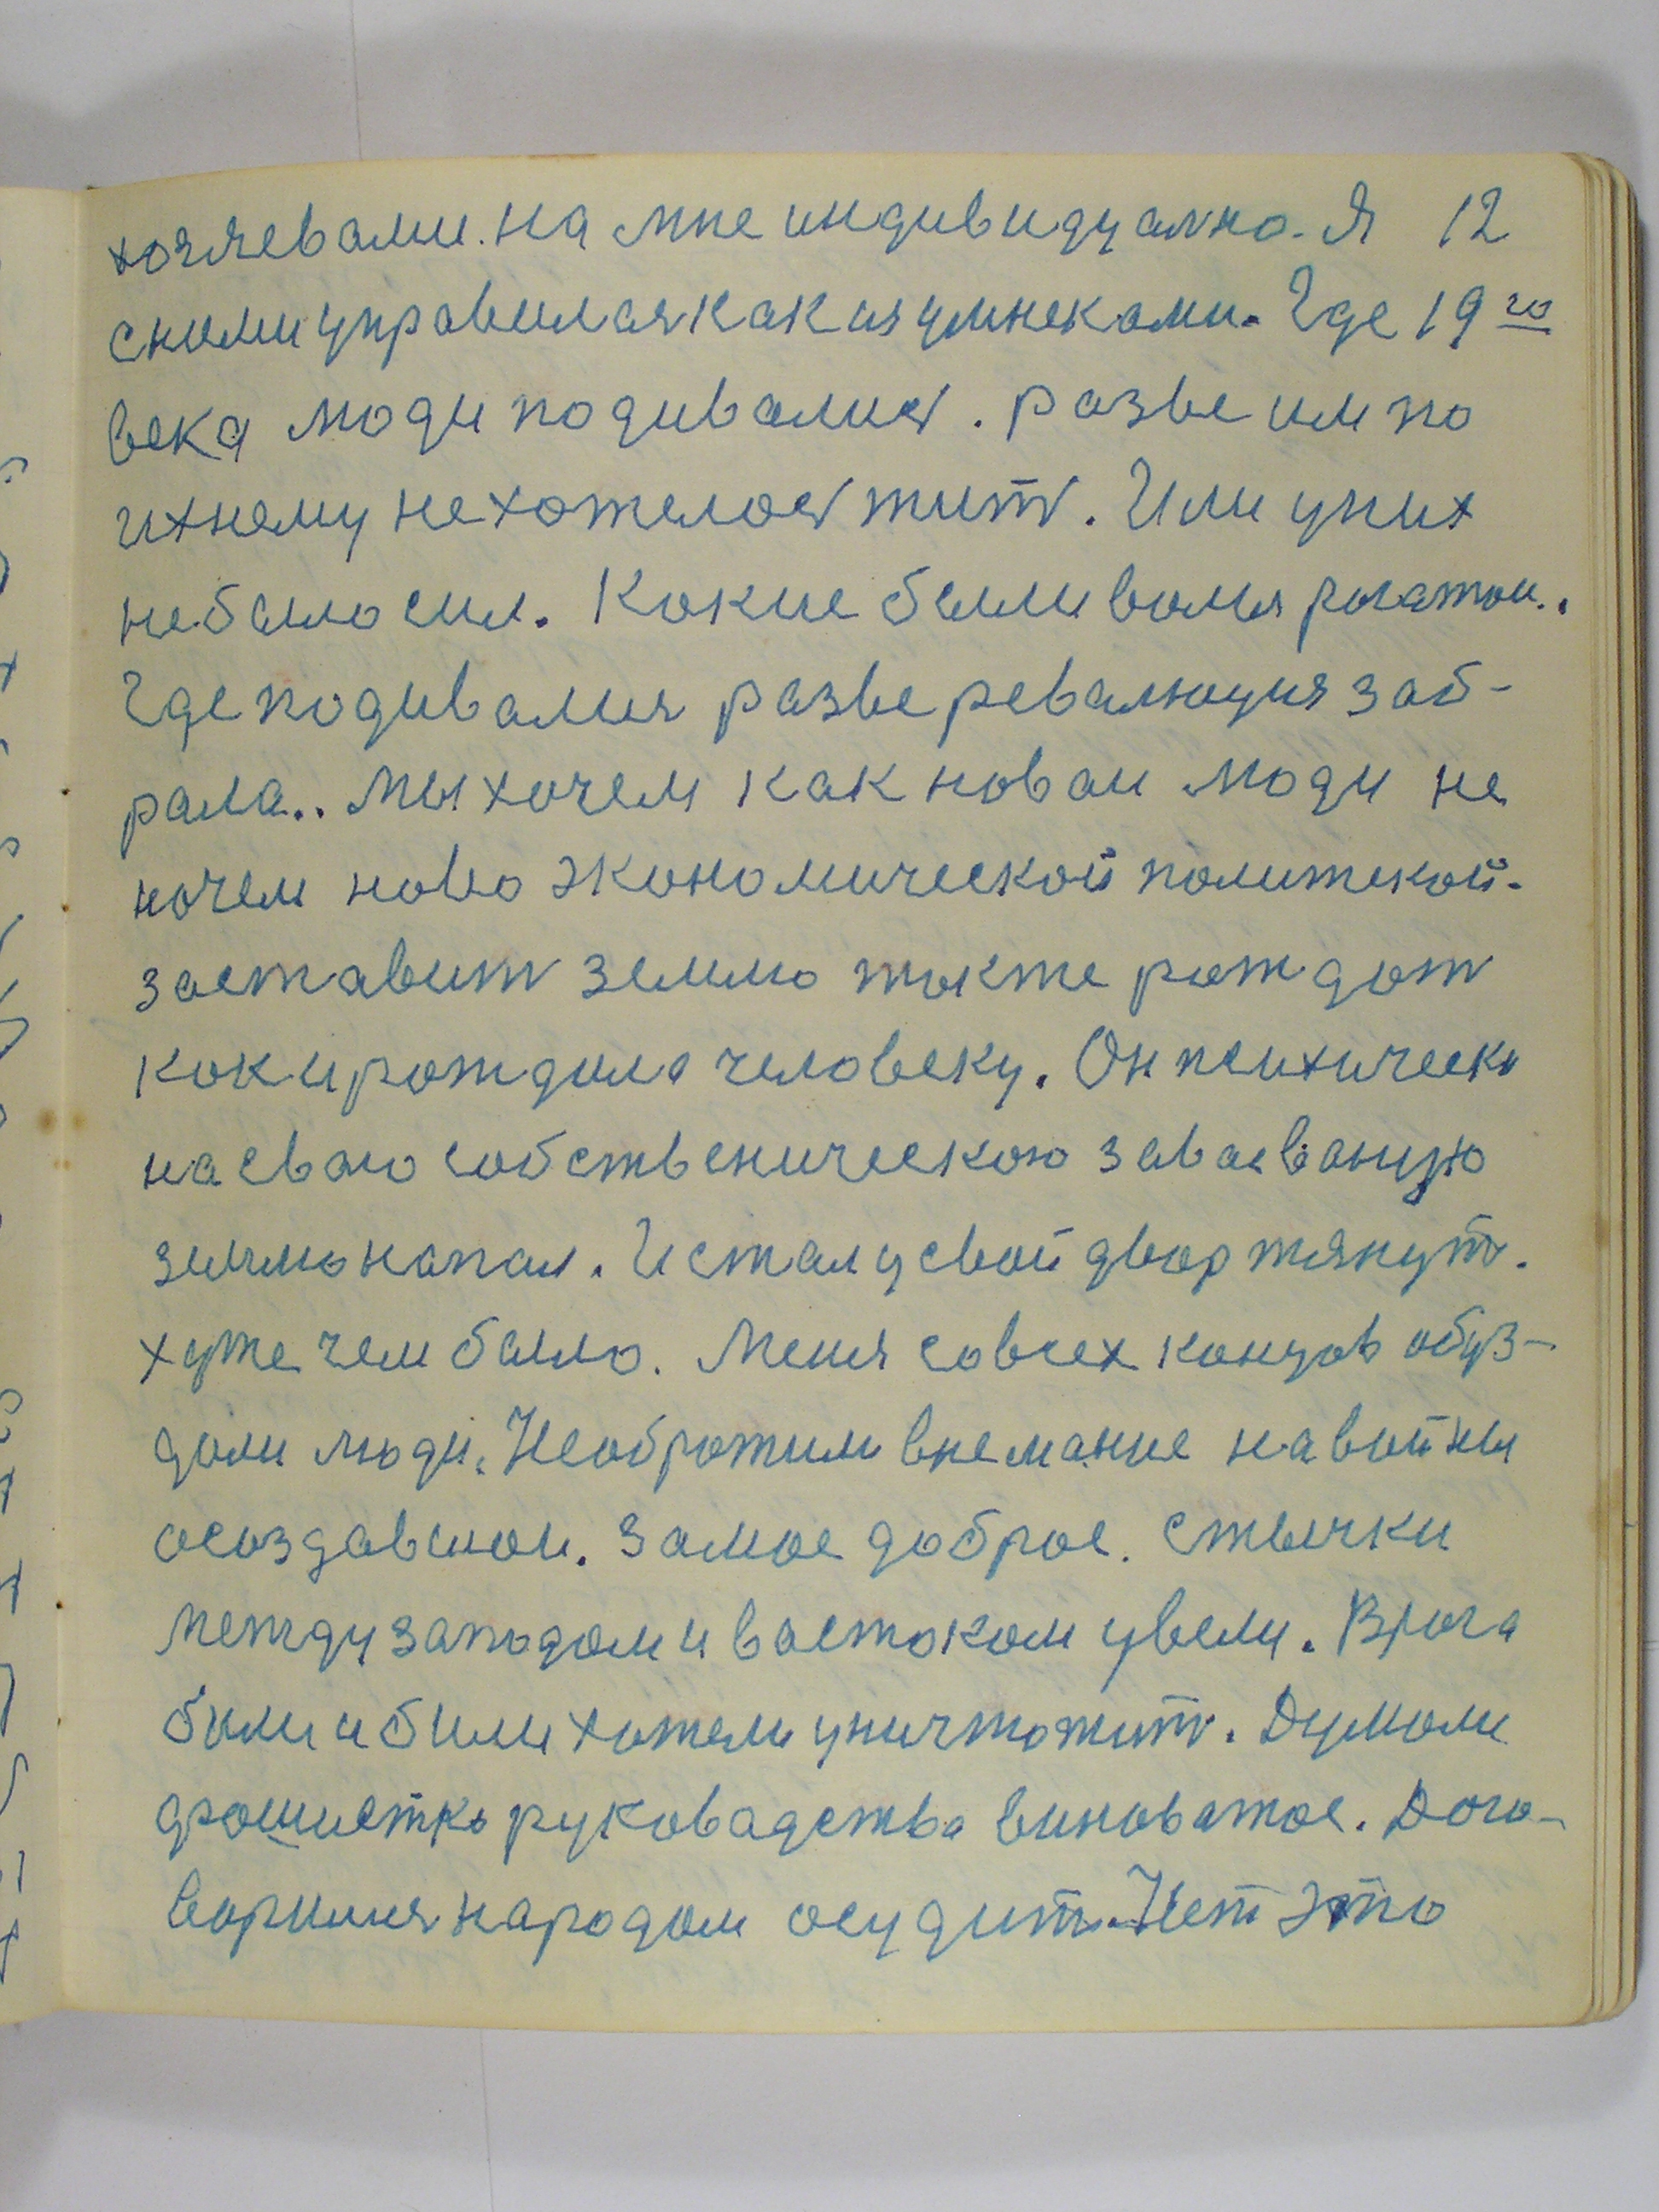 хозяевами. на мне индивидуално. Я 12
сними управилая как из умнеками. Где 19 го
века люди подивались. разве им по
ихнему не хотелось жить. Или уних
небыло сил. Какие были волы рагатои..
Где подивалия разве ревалюция заб-
рала.. Мы хочем как новаи люди не
ночем ново экономической политекой.
заставить землю также рождать
как и рождала человеку. Он психически
на сваю собственическою заваеваную
землю напал. И стал усвой двор тянуть.
хуже чем было. Меня совсех концов обуз-
дали люди. Необротили внемание навойны
осоздавшои. замое доброе. стычки
между западом и востоком увели. Врага
били и били хотели уничтожить. Думали
фошистко руковадства виноватое. Дого-
ворилия народом осудить. Нет это